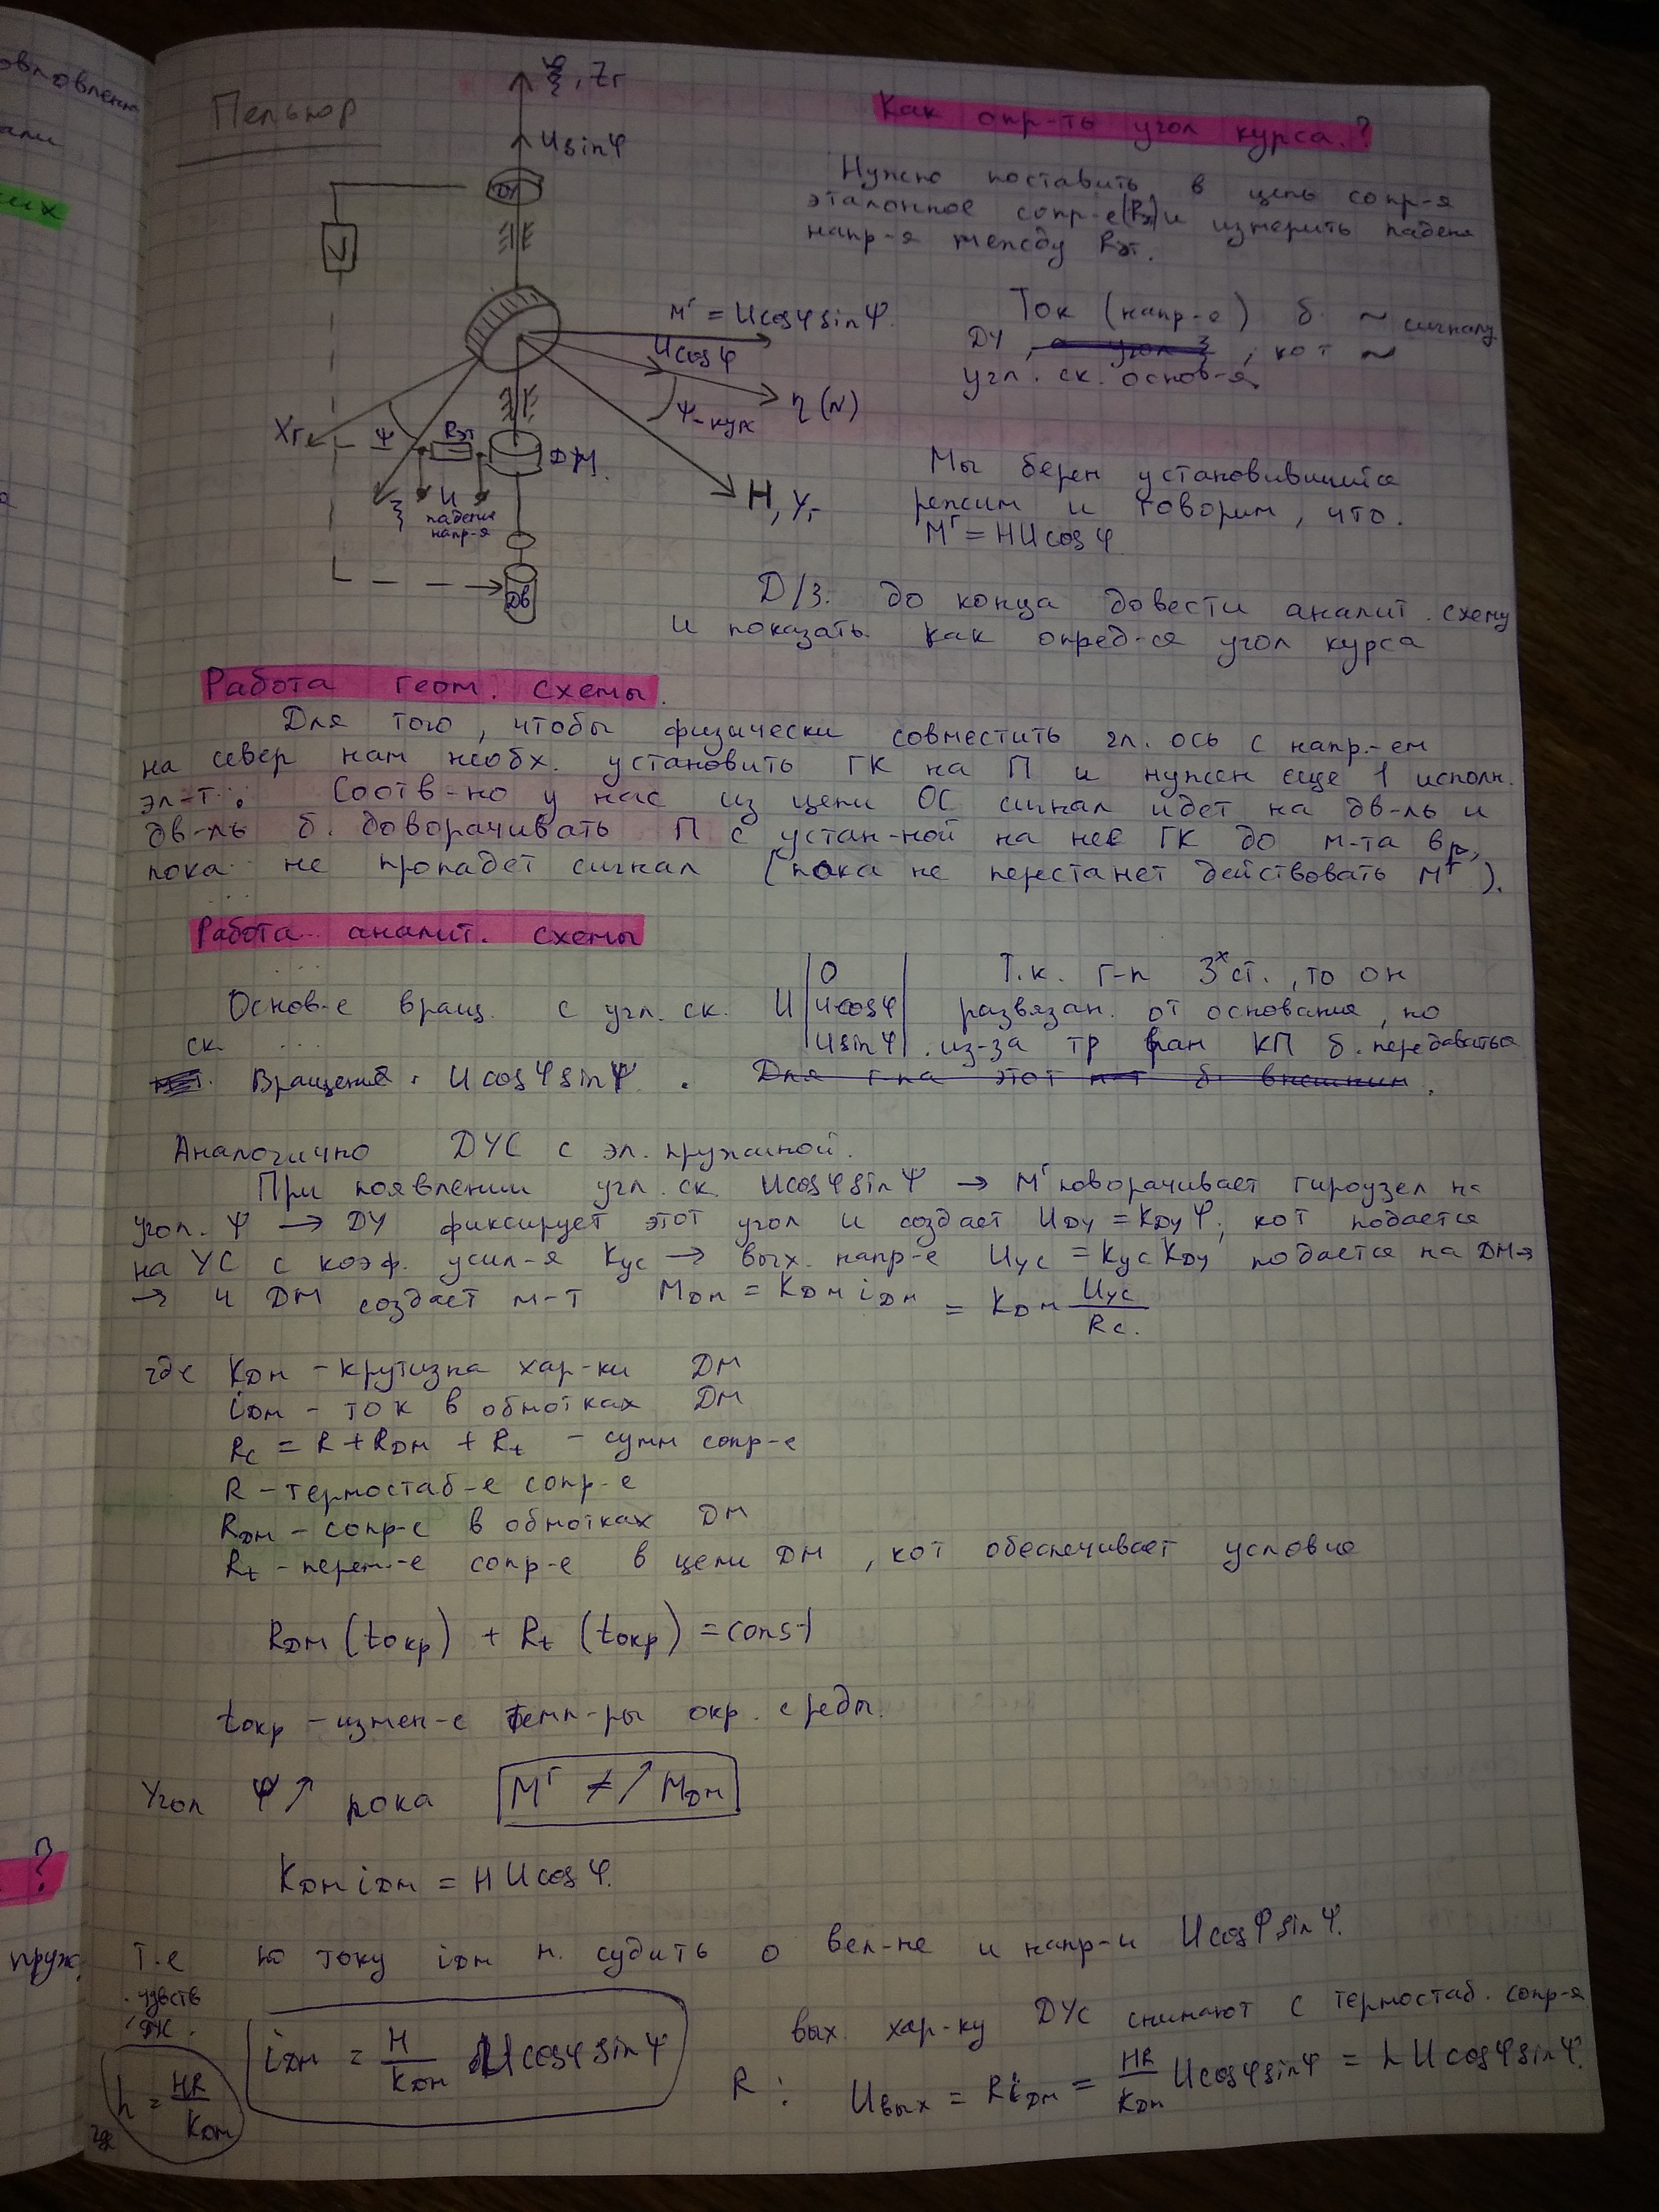 Пельпор
ξ, Zг
Usinφ
ДУ
Как опр-ть угол курса?
Нужно поставить в цепь сопр-я
эталонное сопр-е(Rэт)и измерить падени
напр-я между Rэт.
Mᴦ = Ucosφsinψ
Ucosφ
η (N)
ψ-курс
H, Yг
Xг
ψ
Rэт
ДМ
ξ
U
падения
напр-я
Дв
Ток (напр-е) б. ~ сигналу
ДУ, ; кот ~
угл. ск. основ-я.
Мы берем установившийся
режим и говорим, что.
Mᴦ = HUcosφ
Д/з. до конца довести аналит. схему
и показать как опред-ся угол курса
Работа геом. схемы.
Для того, чтобы физически совместить гл. ось с напр.-ем
на север нам необх. установить ГК на П и нужен еще 1 исполн.
эл-т. Соотв-но у нас из цепи ОС сигнал идет на дв-ль и
дв-ль б. доворачивать П с устан-ной на нее ГК до м-та вр,
пока не пропадет сигнал (пока не перестанет действовать Mᴦ).
Работа аналит. схемы
Основ-е вращ. с угл. ск. U |0 Ucosφ Usinφ|
Т.к. г-п 3ˣ ст., то он
развязан от основания, но
из-за тр КП б. передаваться
ск.
Вращения Ucosφsinψ. Для г-па этот м-т б. внешним.
Аналогично ДУС с эл. пружиной.
При появлении угл. ск. Ucosφsinψ → Mᴦ поворачивает гироузел на
угол ψ → ДУ фиксирует этот угол и создает Uду = Kду ψ, кот подается
на УС с коэф. усил-я Kус → вых. напр-е Uус = Kус Kду подается на ДМ→
→ и ДМ создает м-т Mдм = Kдм iдм = Kдм Uус/Rс.
где Kдм – крутизна хар-ки ДМ
iдм – ток в обмотках ДМ
Rс = R + Rдм + Rt – сумм сопр-е
R – термостаб-е сопр-е
Rдм – сопр-е в обмотках ДМ
Rt – перем-е сопр-е в цепи ДМ, кот обеспечивает условие
Rдм (tокр) + Rt (tокр) = const
tокр – измен-е темп-ры окр. среды.
Угол ψ↗ пока Mᴦ ≠↗ Mдм
Kдм iдм = HUcosφ.
Т.е по току iдм м. судить о вел-не и напр-и Ucosφsinψ.
чувств
h = HR/Kдм
iдм = H/Kдм Ucosφsinψ
вых. хар-ку ДУС снимают с термостаб. сопр-я
R: Uвых = Riдм = HR/Kдм Ucosφsinψ = hUcosφsinψ.
?
пруж.